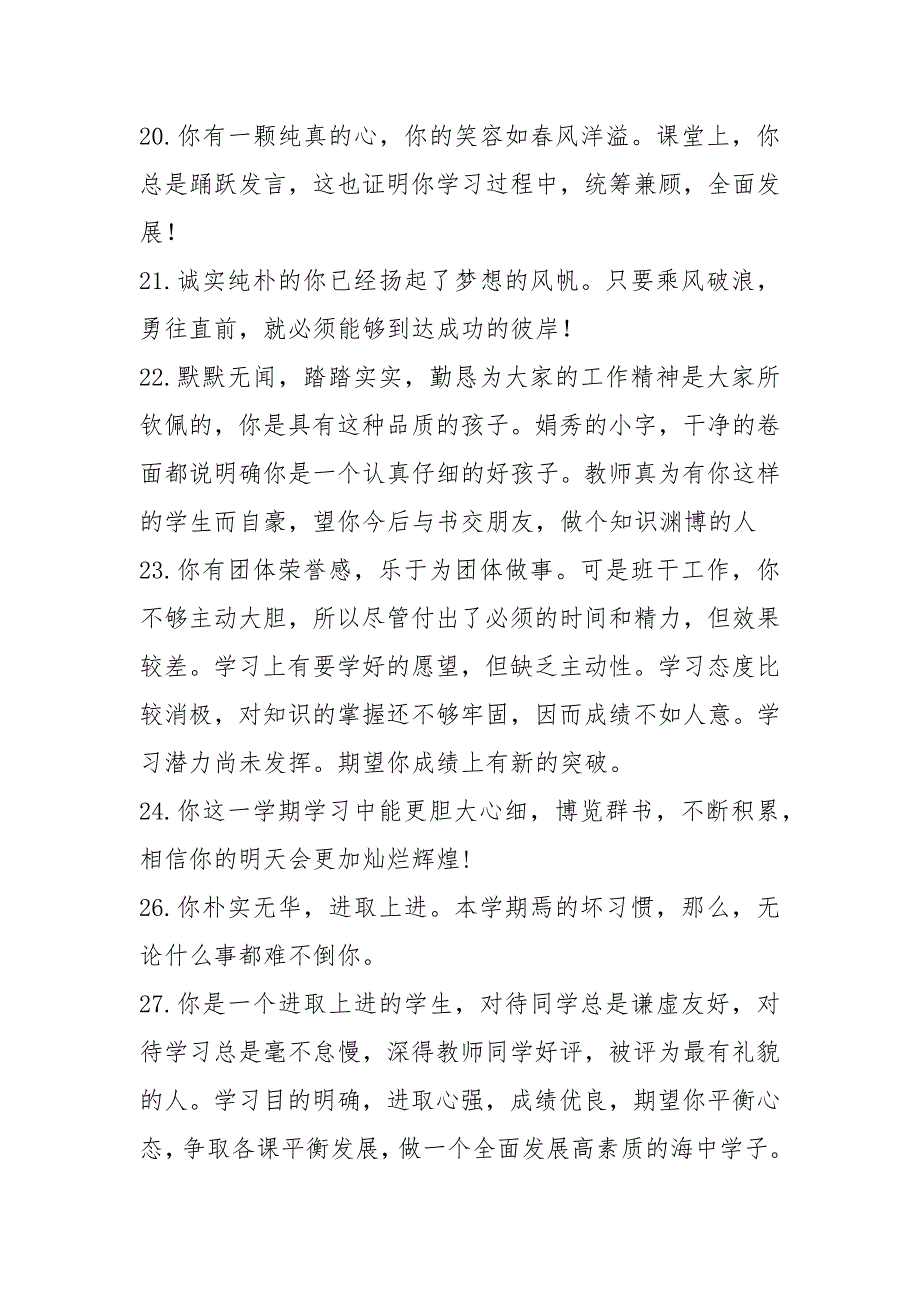 20.你有一颗纯真的心，你的笑容如春风洋溢。课堂上，你
总是踊跃发言，这也证明你学习过程中，统筹兼顾，全面发
展！
21.诚实纯朴的你已经扬起了梦想的风帆。只要乘风破浪，
勇往直前，就必须能够到达成功的彼岸！
22.默默无闻，踏踏实实，勤恳为大家的工作精神是大家所
钦佩的，你是具有这种品质的孩子。娟秀的小字，干净的卷
面都说明确你是一个认真仔细的好孩子。教师真为有你这样
的学生而自豪，望你今后与书交朋友，做个知识渊博的人
23.你有团体荣誉感，乐于为团体做事。可是班干工作，你
不够主动大胆，所以尽管付出了必须的时间和精力，但效果
较差。学习上有要学好的愿望，但缺乏主动性。学习态度比
较消极，对知识的掌握还不够牢固，因而成绩不如人意。学
习潜力尚未发挥。期望你成绩上有新的突破。
24.你这一学期学习中能更胆大心细，博览群书，不断积累，
相信你的明天会更加灿烂辉煌!
26.你朴实无华，进取上进。本学期焉的坏习惯，那么，无
论什么事都难不倒你。
27.你是一个进取上进的学生，对待同学总是谦虚友好，对
待学习总是毫不怠慢，深得教师同学好评，被评为最有礼貌
的人。学习目的明确，进取心强，成绩优良，期望你平衡心
态，争取各课平衡发展，做一个全面发展高素质的海中学子。